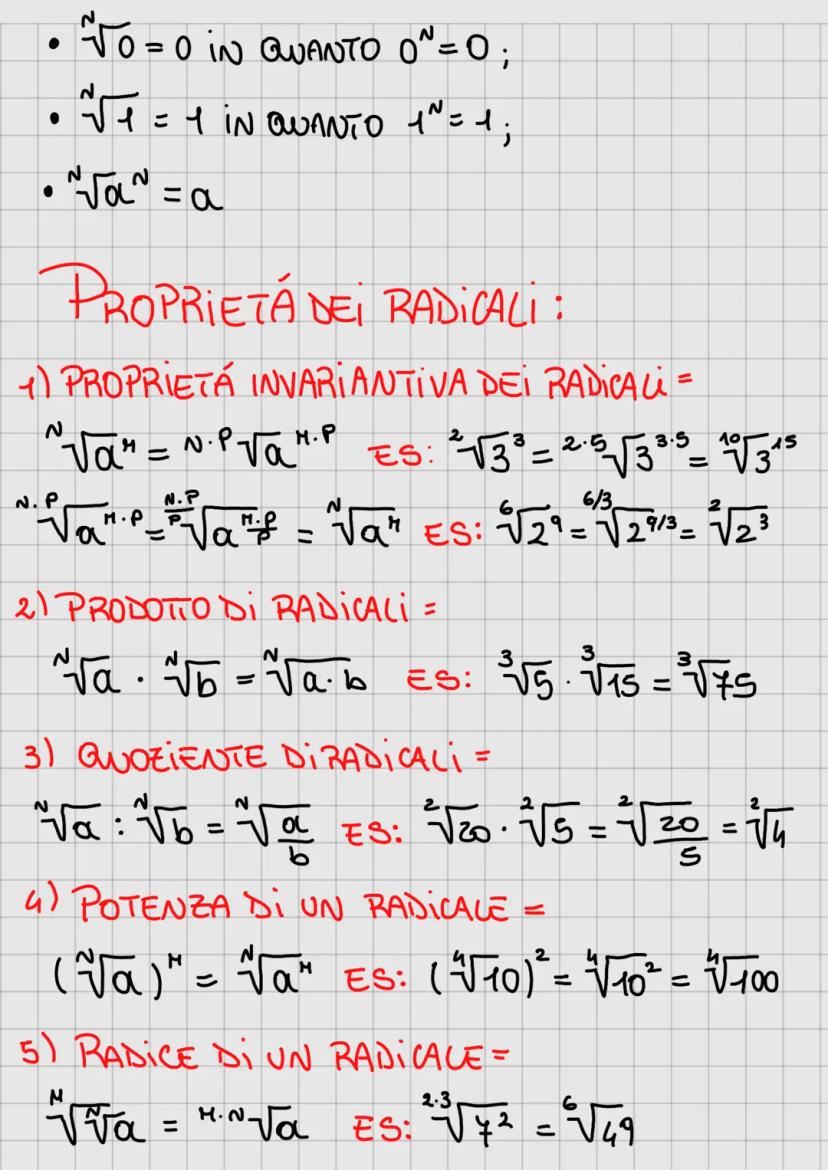 • ᴺ√0 = 0 iN QUANTO 0ᴺ = 0;
• ᴺ√1 = 1 iN QUANTO 1ᴺ = 1;
• ᴺ√aᴺ = a
PROPRiETÁ DEi RADiCALi:
1) PROPRiETÁ iNVARiANTiVA DEi RADiCALi =
ᴺ√aᴹ = ᴺ·ᴾ√aᴹ·ᴾ ES: ²√3³ = ²·⁵√3³·⁵ = ¹⁰√3¹⁵
ᴺ·ᴾ√aᴹ·ᴾ = ᴺ·ᴾ/ᴾ√aᴹ·ᴾ/ᴾ = ᴺ√aᴹ ES: ⁶√2⁹ = ⁶/³√2⁹/³ = ²√2³
2) PRODOTTO Di RADiCALi =
ᴺ√a · ᴺ√b = ᴺ√a·b ES: ³√5 · ³√15 = ³√75
3) QUOZiENTE Di RADiCALi =
ᴺ√a : ᴺ√b = ᴺ√a/b ES: ²√20 · ²√5 = ²√20/5 = ²√4
4) POTENZA Di UN RADiCALE =
(ᴺ√a)ᴹ = ᴺ√aᴹ ES: (⁴√10)² = ⁴√10² = ⁴√100
5) RADiCE Di UN RADiCALE =
ᴹ√ᴺ√a = ᴹ·ᴺ√a ES: ²·³√7² = ⁶√49